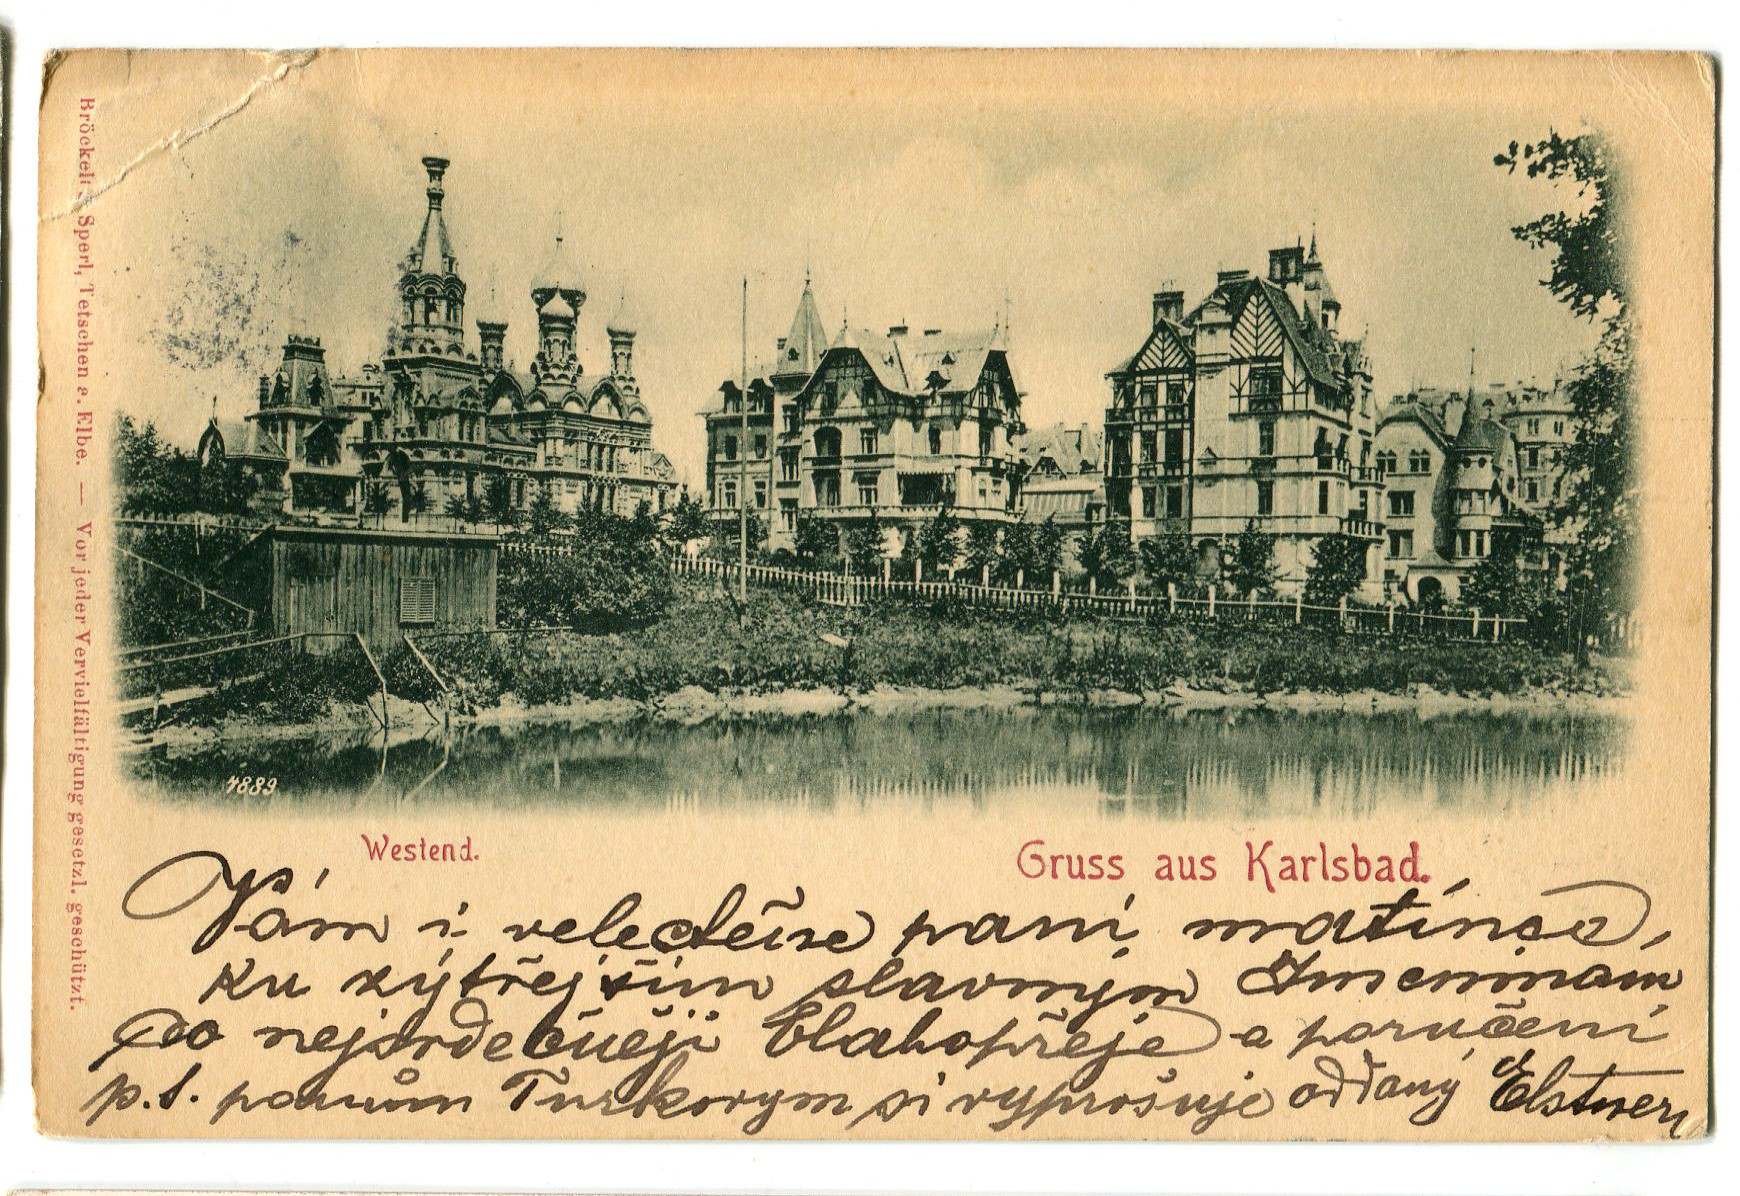 Bröckelt & Sperl, Tetschen a. Elbe. — Vor jeder Vervielfältigung gesetzl. geschützt.
4889
Westend.
Gruss aus Karlsbad.
Vám i veleděině paní matince,
ku zýtřejším slavným Jmeninám
po nejsrdečněji blahopřeje a poručení
p. t. panům Turkovym si vyprošuje oddaný